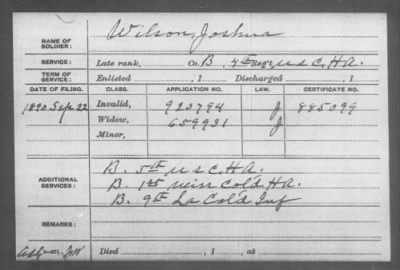 NAME OF SOLDIER: Wilson, Joshua
SERVICE: Late rank, Co. B, 4th Reg't U S C, H A.
TERM OF SERVICE: Enlisted , 1 Discharged , 1
DATE OF FILING. CLASS. APPLICATION NO. LAW. CERTIFICATE NO.
1890 Sep. 22 Invalid, 920794 J 885099
Widow, 659931 J
Minor,
ADDITIONAL SERVICES: B. 5th U S C, H A.
B. 1st Miss Col'd H A.
B. 9th La Col'd Inf
REMARKS:
Died , 1 , at